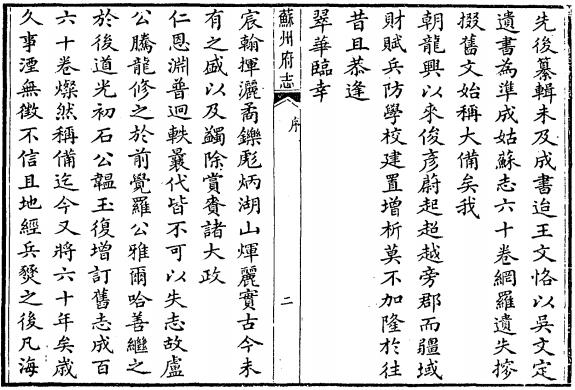 先後纂輯未及成書迨王文恪以吳文定
遺書為準成姑蘇志六十卷網羅遺失摎
掇舊文始稱大備矣我
朝龍興以來俊彥蔚起超越旁郡而疆域
財賦兵防學校建置增析莫不加隆於往
昔且恭逢
翠華臨幸
蘇州府志
序
二
宸翰揮灑矞鑠彪炳湖山煇麗實古今未
有之盛以及蠲除賞賚諸大政
仁恩淵普迥軼曩代皆不可以失志故盧
公騰龍修之於前覺羅公雅爾哈善繼之
於後道光初石公韞玉復增訂舊志成百
六十卷燦然稱備迄今又將六十年矣歲
久事湮無徵不信且地經兵燹之後凡海